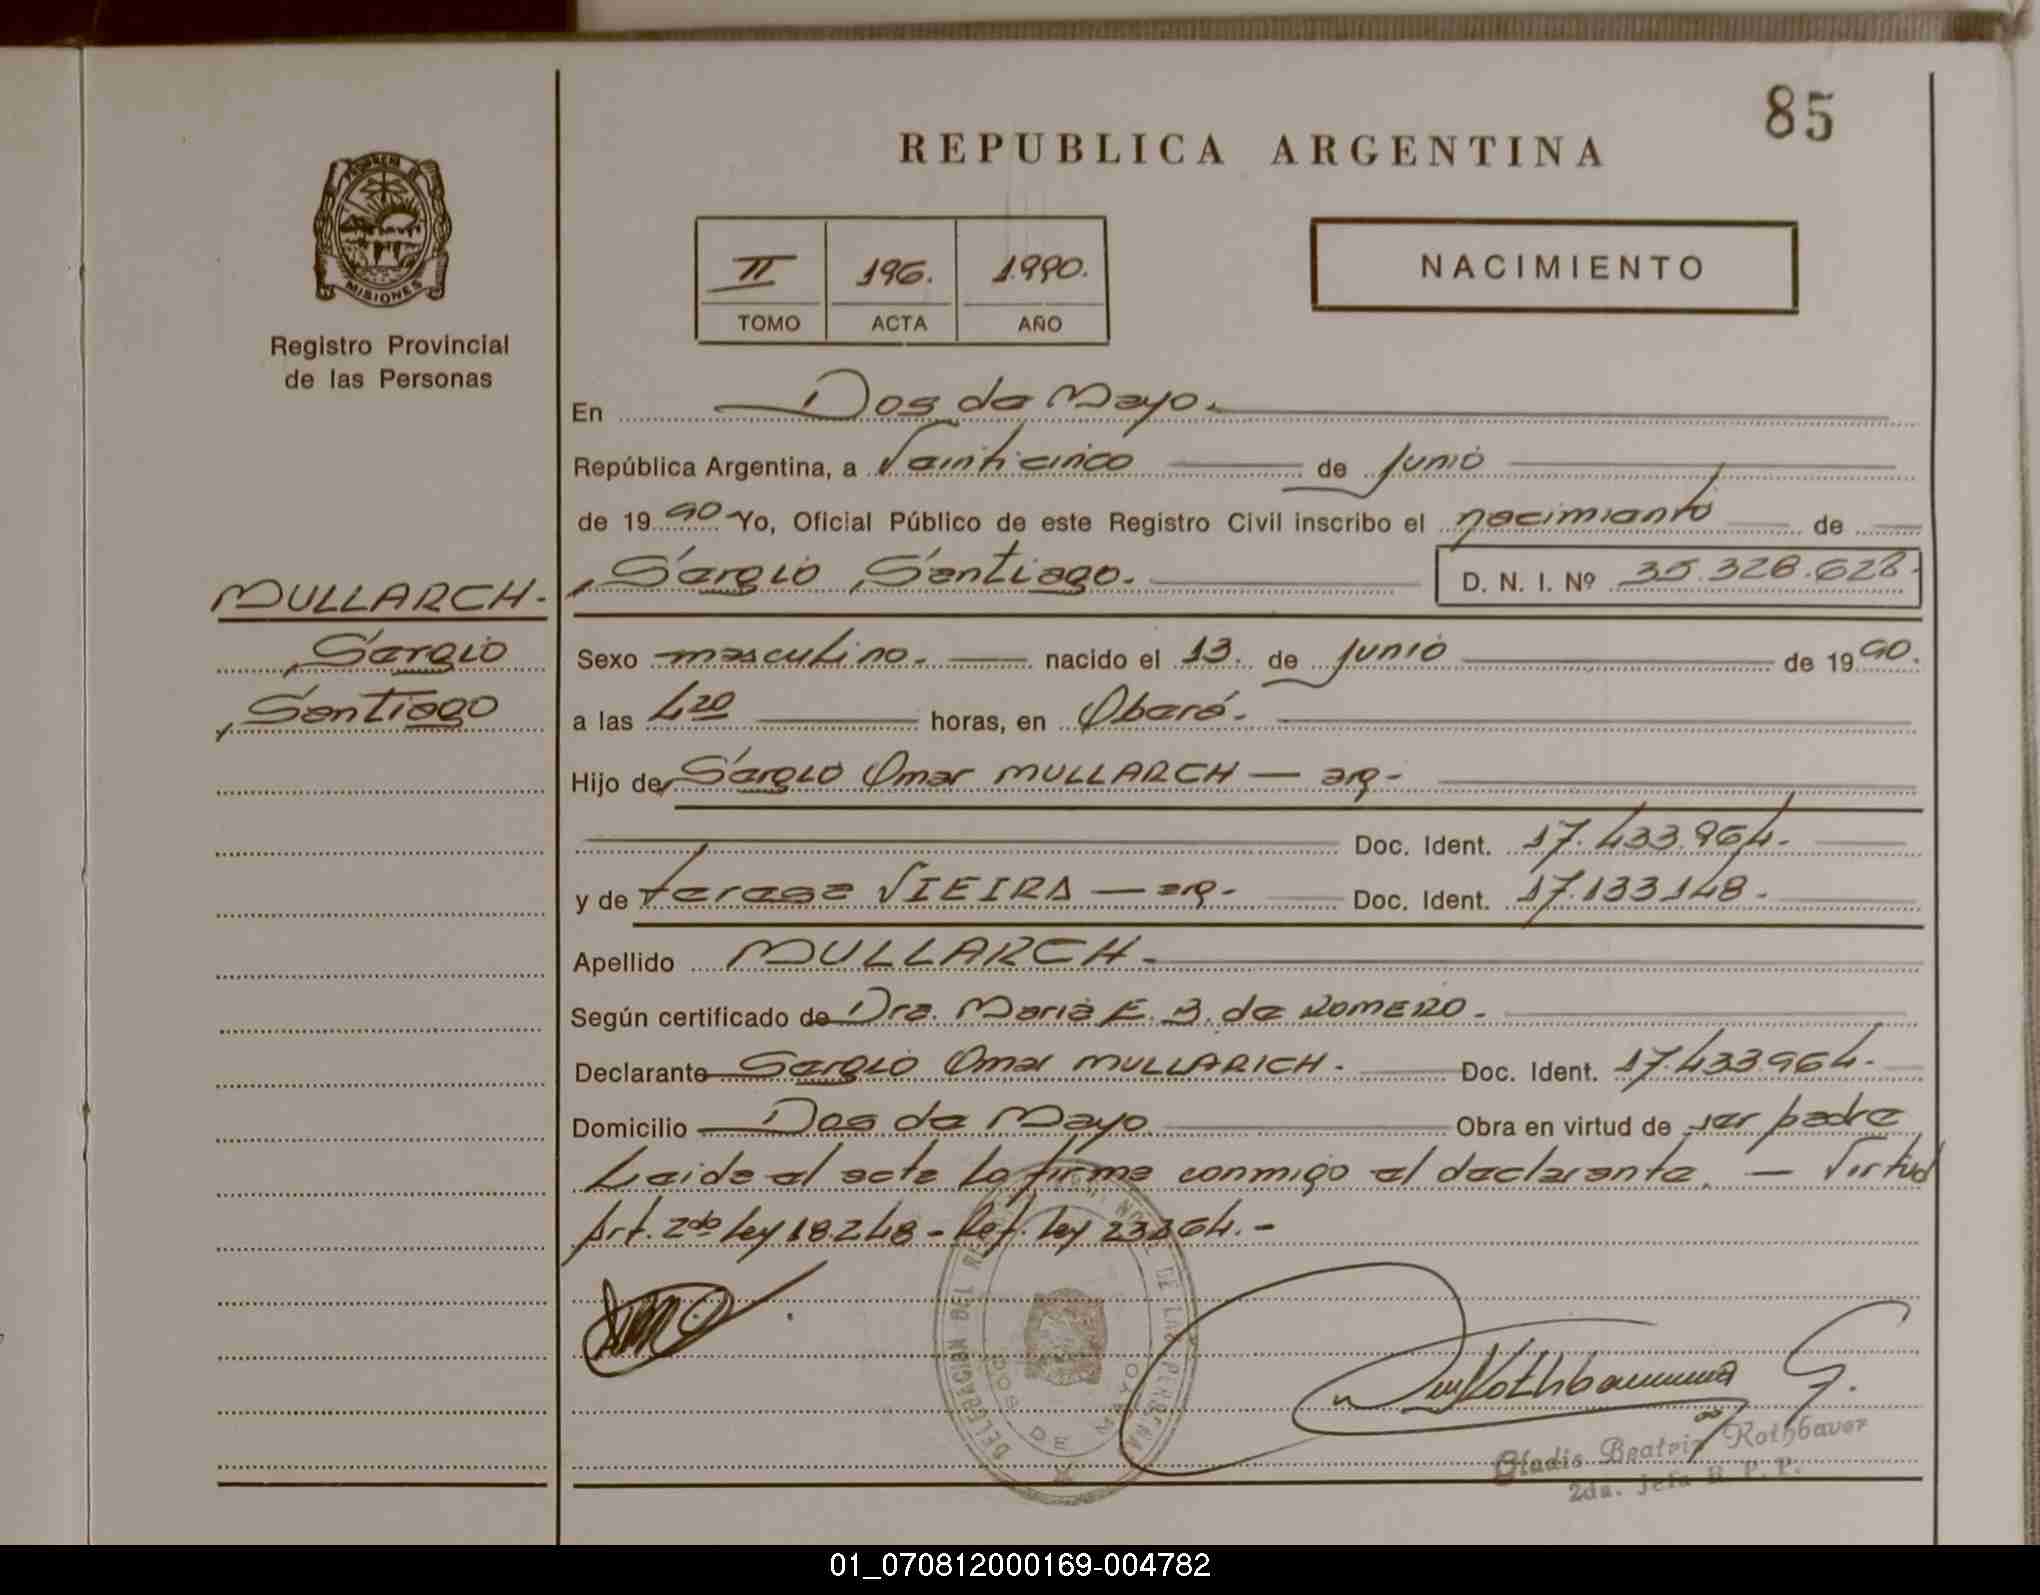 85
REPUBLICA ARGENTINA
MISIONES
Registro Provincial
de las Personas
II 196. 1990.
TOMO ACTA AÑO
NACIMIENTO
En Dos de Mayo.
República Argentina, a Veinticinco de Junio
de 1990 Yo, Oficial Público de este Registro Civil inscribo el nacimiento de
Sergio Santiago. D. N. I. Nº 35.328.628.
MULLARCH.
Sergio
Santiago
Sexo masculino. nacido el 13. de Junio de 1990.
a las 4 20 horas, en Oberá.
Hijo de Sergio Omar MULLARCH — arg-
Doc. Ident. 17.433.964.
y de Teresa VIEIRA — arg- Doc. Ident. 17.133.148.
Apellido MULLARCH.
Según certificado de Dra. Maria E. B. de ROMERO.
Declarante Sergio Omar MULLARICH. Doc. Ident. 17.433.964.
Domicilio Dos de Mayo Obra en virtud de ser padre
Leida el acta la firma conmigo el declarante. — Virtud
Art. 2do Ley 18.248 - Ref. Ley 23264.-
DELEGACION DEL DE LAS PERSONAS
DOS DE MAYO
Gladis Beatriz Rothbaver
2da. Jefa R. P. P.
01_070812000169-004782